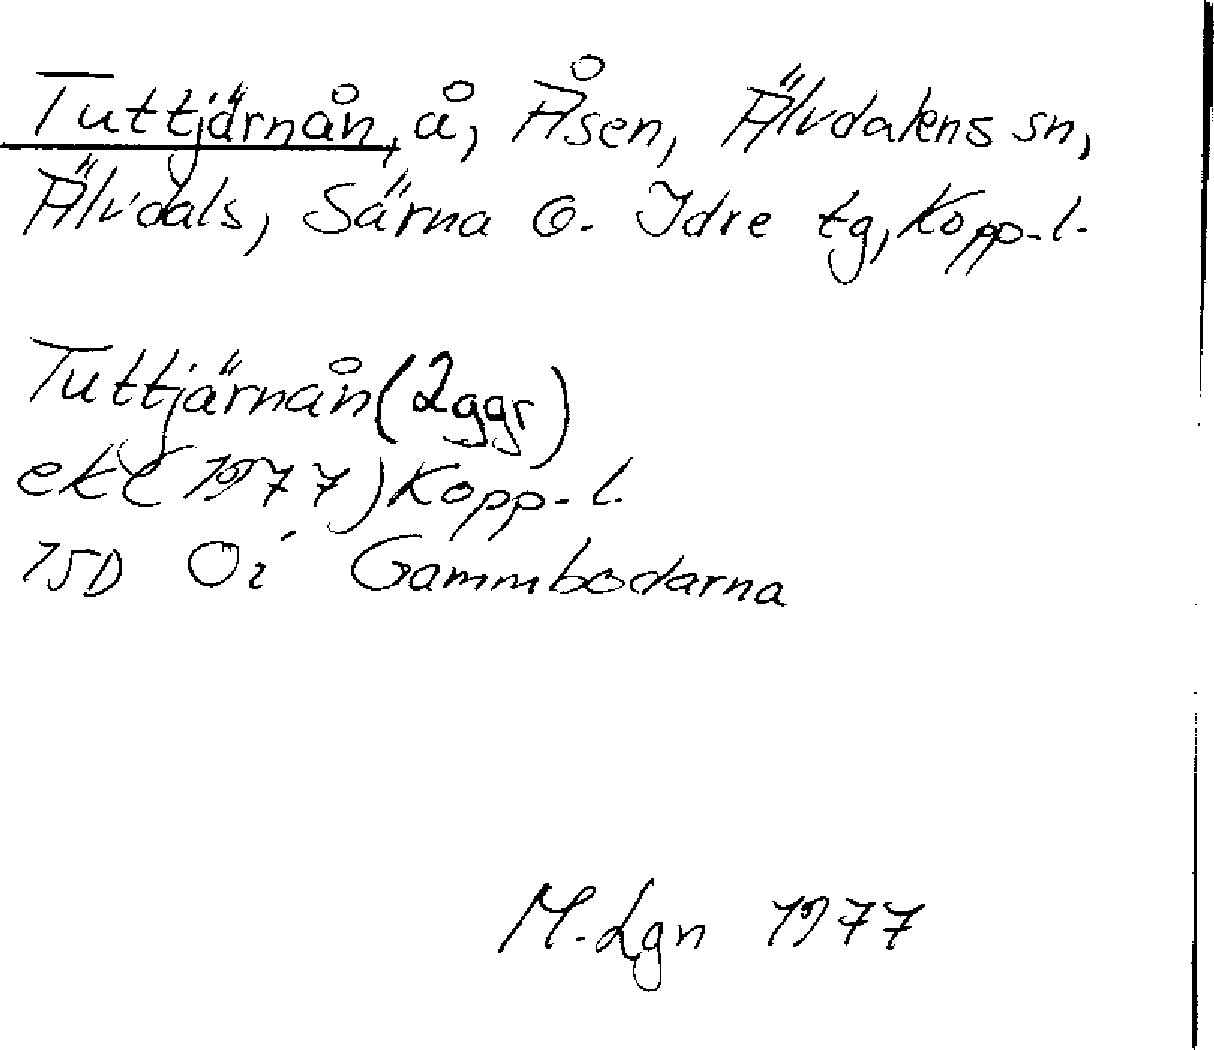 Tuttjärnån, å, Åsen, Älvdalens sn,
Älvdals, Särna o. Idre tg, Kopp. l.
Tuttjärnån (2ggr)
ek (1977) Kopp. l.
15D 0i Gammbodarna
M. Lgn 1977